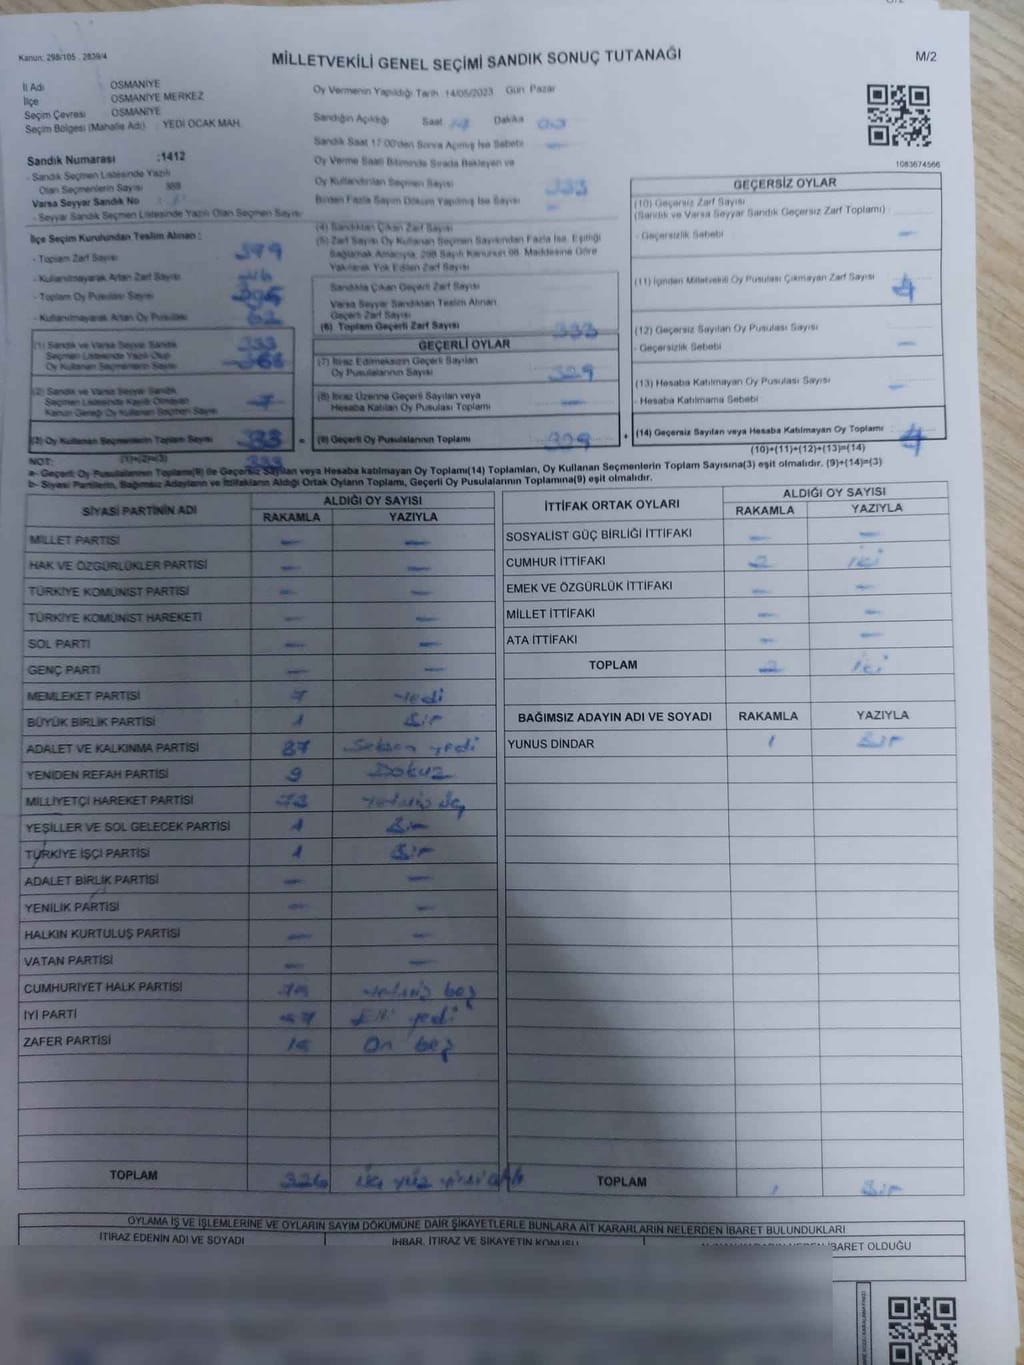 Kanun: 298/105 . 2839/4
MİLLETVEKİLİ GENEL SEÇİMİ SANDIK SONUÇ TUTANAĞI
M/2
İl Adı OSMANİYE
İlçe OSMANİYE MERKEZ
Seçim Çevresi OSMANİYE
Seçim Bölgesi (Mahalle Adı) YEDİ OCAK MAH.
Sandık Numarası :1412
- Sandık Seçmen Listesinde Yazılı
Olan Seçmenlerin Sayısı
Varsa Seyyar Sandık No
- Seyyar Sandık Seçmen Listesinde Yazılı Olan Seçmen Sayısı
Oy Vermenin Yapıldığı Tarih : 14/05/2023 Gün: Pazar
Sandığın Açıldığı Saat Dakika
Sandık Saat 17.00'den Sonra Açılmış İse Sebebi
Oy Verme Saati Bitiminde Sırada Bekleyen ve
Oy Kullandırılan Seçmen Sayısı 333
Birden Fazla Sayım Döküm Yapılmış İse Sayısı
1083674566
İlçe Seçim Kurulundan Teslim Alınan :
- Toplam Zarf Sayısı
- Kullanılmayarak Artan Zarf Sayısı
- Toplam Oy Pusulası Sayısı
- Kullanılmayarak Artan Oy Pusulası 62
(1) Sandık ve Varsa Seyyar Sandık 333
Seçmen Listesinde Yazılı Olup
Oy Kullanan Seçmenlerin Sayısı
(2) Sandık ve Varsa Seyyar Sandık
Seçmen Listesinde Kayıtlı Olmayan
Kanun Gereği Oy Kullanan Seçmen Sayısı
(3) Oy Kullanan Seçmenlerin Toplam Sayısı 333 =
(1)+(2)=(3)
333
(4) Sandıktan Çıkan Zarf Sayısı
(5) Zarf Sayısı Oy Kullanan Seçmen Sayısından Fazla İse, Eşitliği
Sağlamak Amacıyla, 298 Sayılı Kanunun 98. Maddesine Göre
Yakılarak Yok Edilen Zarf Sayısı
Sandıkta Çıkan Geçerli Zarf Sayısı
Varsa Seyyar Sandıktan Teslim Alınan
Geçerli Zarf Sayısı
(6) Toplam Geçerli Zarf Sayısı 333
GEÇERLİ OYLAR
(7) İtiraz Edilmeksizin Geçerli Sayılan
Oy Pusulalarının Sayısı 329
(8) İtiraz Üzerine Geçerli Sayılan veya
Hesaba Katılan Oy Pusulası Toplamı
(9) Geçerli Oy Pusulalarının Toplamı 329 +
GEÇERSİZ OYLAR
(10) Geçersiz Zarf Sayısı
(Sandık ve Varsa Seyyar Sandık Geçersiz Zarf Toplamı) :
- Geçersizlik Sebebi -
(11) İçinden Milletvekili Oy Pusulası Çıkmayan Zarf Sayısı 4
(12) Geçersiz Sayılan Oy Pusulası Sayısı
- Geçersizlik Sebebi -
(13) Hesaba Katılmayan Oy Pusulası Sayısı -
- Hesaba Katılmama Sebebi
(14) Geçersiz Sayılan veya Hesaba Katılmayan Oy Toplamı 4
(10)+(11)+(12)+(13)=(14)
NOT:
a- Geçerli Oy Pusulalarının Toplamı(9) ile Geçersiz Sayılan veya Hesaba katılmayan Oy Toplamı(14) Toplamları, Oy Kullanan Seçmenlerin Toplam Sayısına(3) eşit olmalıdır. (9)+(14)=(3)
b- Siyasi Partilerin, Bağımsız Adayların ve İttifakların Aldığı Ortak Oyların Toplamı, Geçerli Oy Pusulalarının Toplamına(9) eşit olmalıdır.
SİYASİ PARTİNİN ADI ALDIĞI OY SAYISI
RAKAMLA YAZIYLA
MİLLET PARTİSİ - -
HAK VE ÖZGÜRLÜKLER PARTİSİ - -
TÜRKİYE KOMÜNİST PARTİSİ - -
TÜRKİYE KOMÜNİST HAREKETİ - -
SOL PARTİ - -
GENÇ PARTİ - -
MEMLEKET PARTİSİ 7 Yedi
BÜYÜK BİRLİK PARTİSİ 1 Bir
ADALET VE KALKINMA PARTİSİ 87 Seksen yedi
YENİDEN REFAH PARTİSİ 9 Dokuz
MİLLİYETÇİ HAREKET PARTİSİ 73 Yetmiş üç
YEŞİLLER VE SOL GELECEK PARTİSİ 1 Bir
TÜRKİYE İŞÇİ PARTİSİ 1 Bir
ADALET BİRLİK PARTİSİ - -
YENİLİK PARTİSİ - -
HALKIN KURTULUŞ PARTİSİ - -
VATAN PARTİSİ - -
CUMHURİYET HALK PARTİSİ 75 Yetmiş beş
İYİ PARTİ 57 Elli yedi
ZAFER PARTİSİ 15 On beş
TOPLAM 326 Üç yüz yirmi altı
İTTİFAK ORTAK OYLARI ALDIĞI OY SAYISI
RAKAMLA YAZIYLA
SOSYALİST GÜÇ BİRLİĞİ İTTİFAKI - -
CUMHUR İTTİFAKI 2 İki
EMEK VE ÖZGÜRLÜK İTTİFAKI - -
MİLLET İTTİFAKI - -
ATA İTTİFAKI - -
TOPLAM 2 İki
BAĞIMSIZ ADAYIN ADI VE SOYADI RAKAMLA YAZIYLA
YUNUS DİNDAR 1 Bir
TOPLAM 1 Bir
OYLAMA İŞ VE İŞLEMLERİNE VE OYLARIN SAYIM DÖKÜMÜNE DAİR ŞİKAYETLERLE BUNLARA AİT KARARLARIN NELERDEN İBARET BULUNDUKLARI
İTİRAZ EDENİN ADI VE SOYADI İHBAR, İTİRAZ VE ŞİKAYETİN KONUSU İBARET OLDUĞU